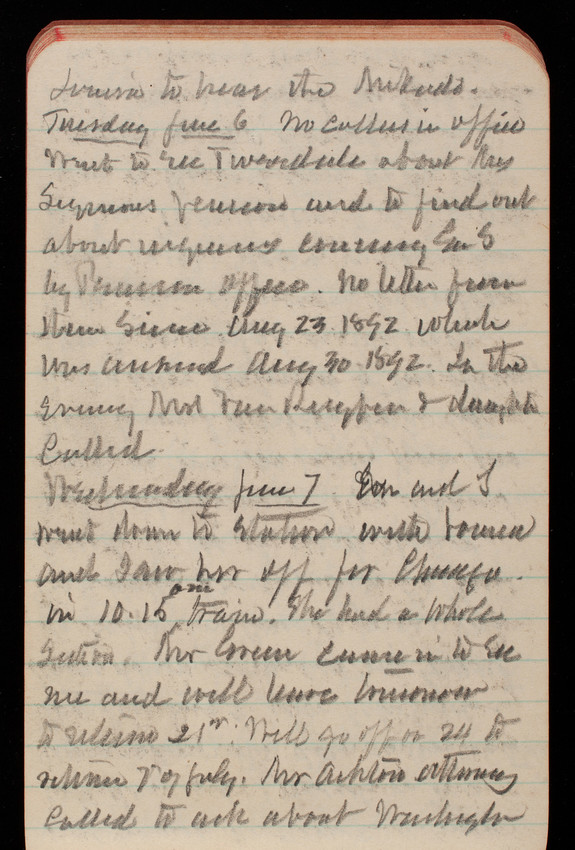 Louisa to hear the Mikado.
Tuesday June 6 No callers in office
Went to see Tweedale about Mrs
Seymours pension and to find out
about inquiries concerning Gen S
by Pension Office. No letter from
them since Aug 23 1892 which
was answered Aug 30 1892. In the
Evening Mrs Van & daughter
Called
Wednesday June 7 Eon and I
went down to Station with Louisa
and saw her off for Chicago.
in 10.15 am train. She had a whole
Section. Mr Green came in to See
me and will leave tomorrow
to return 21st. Will go off on 24 to
return 7 of July. Mr Ashton attorney
Called to ask about Washington